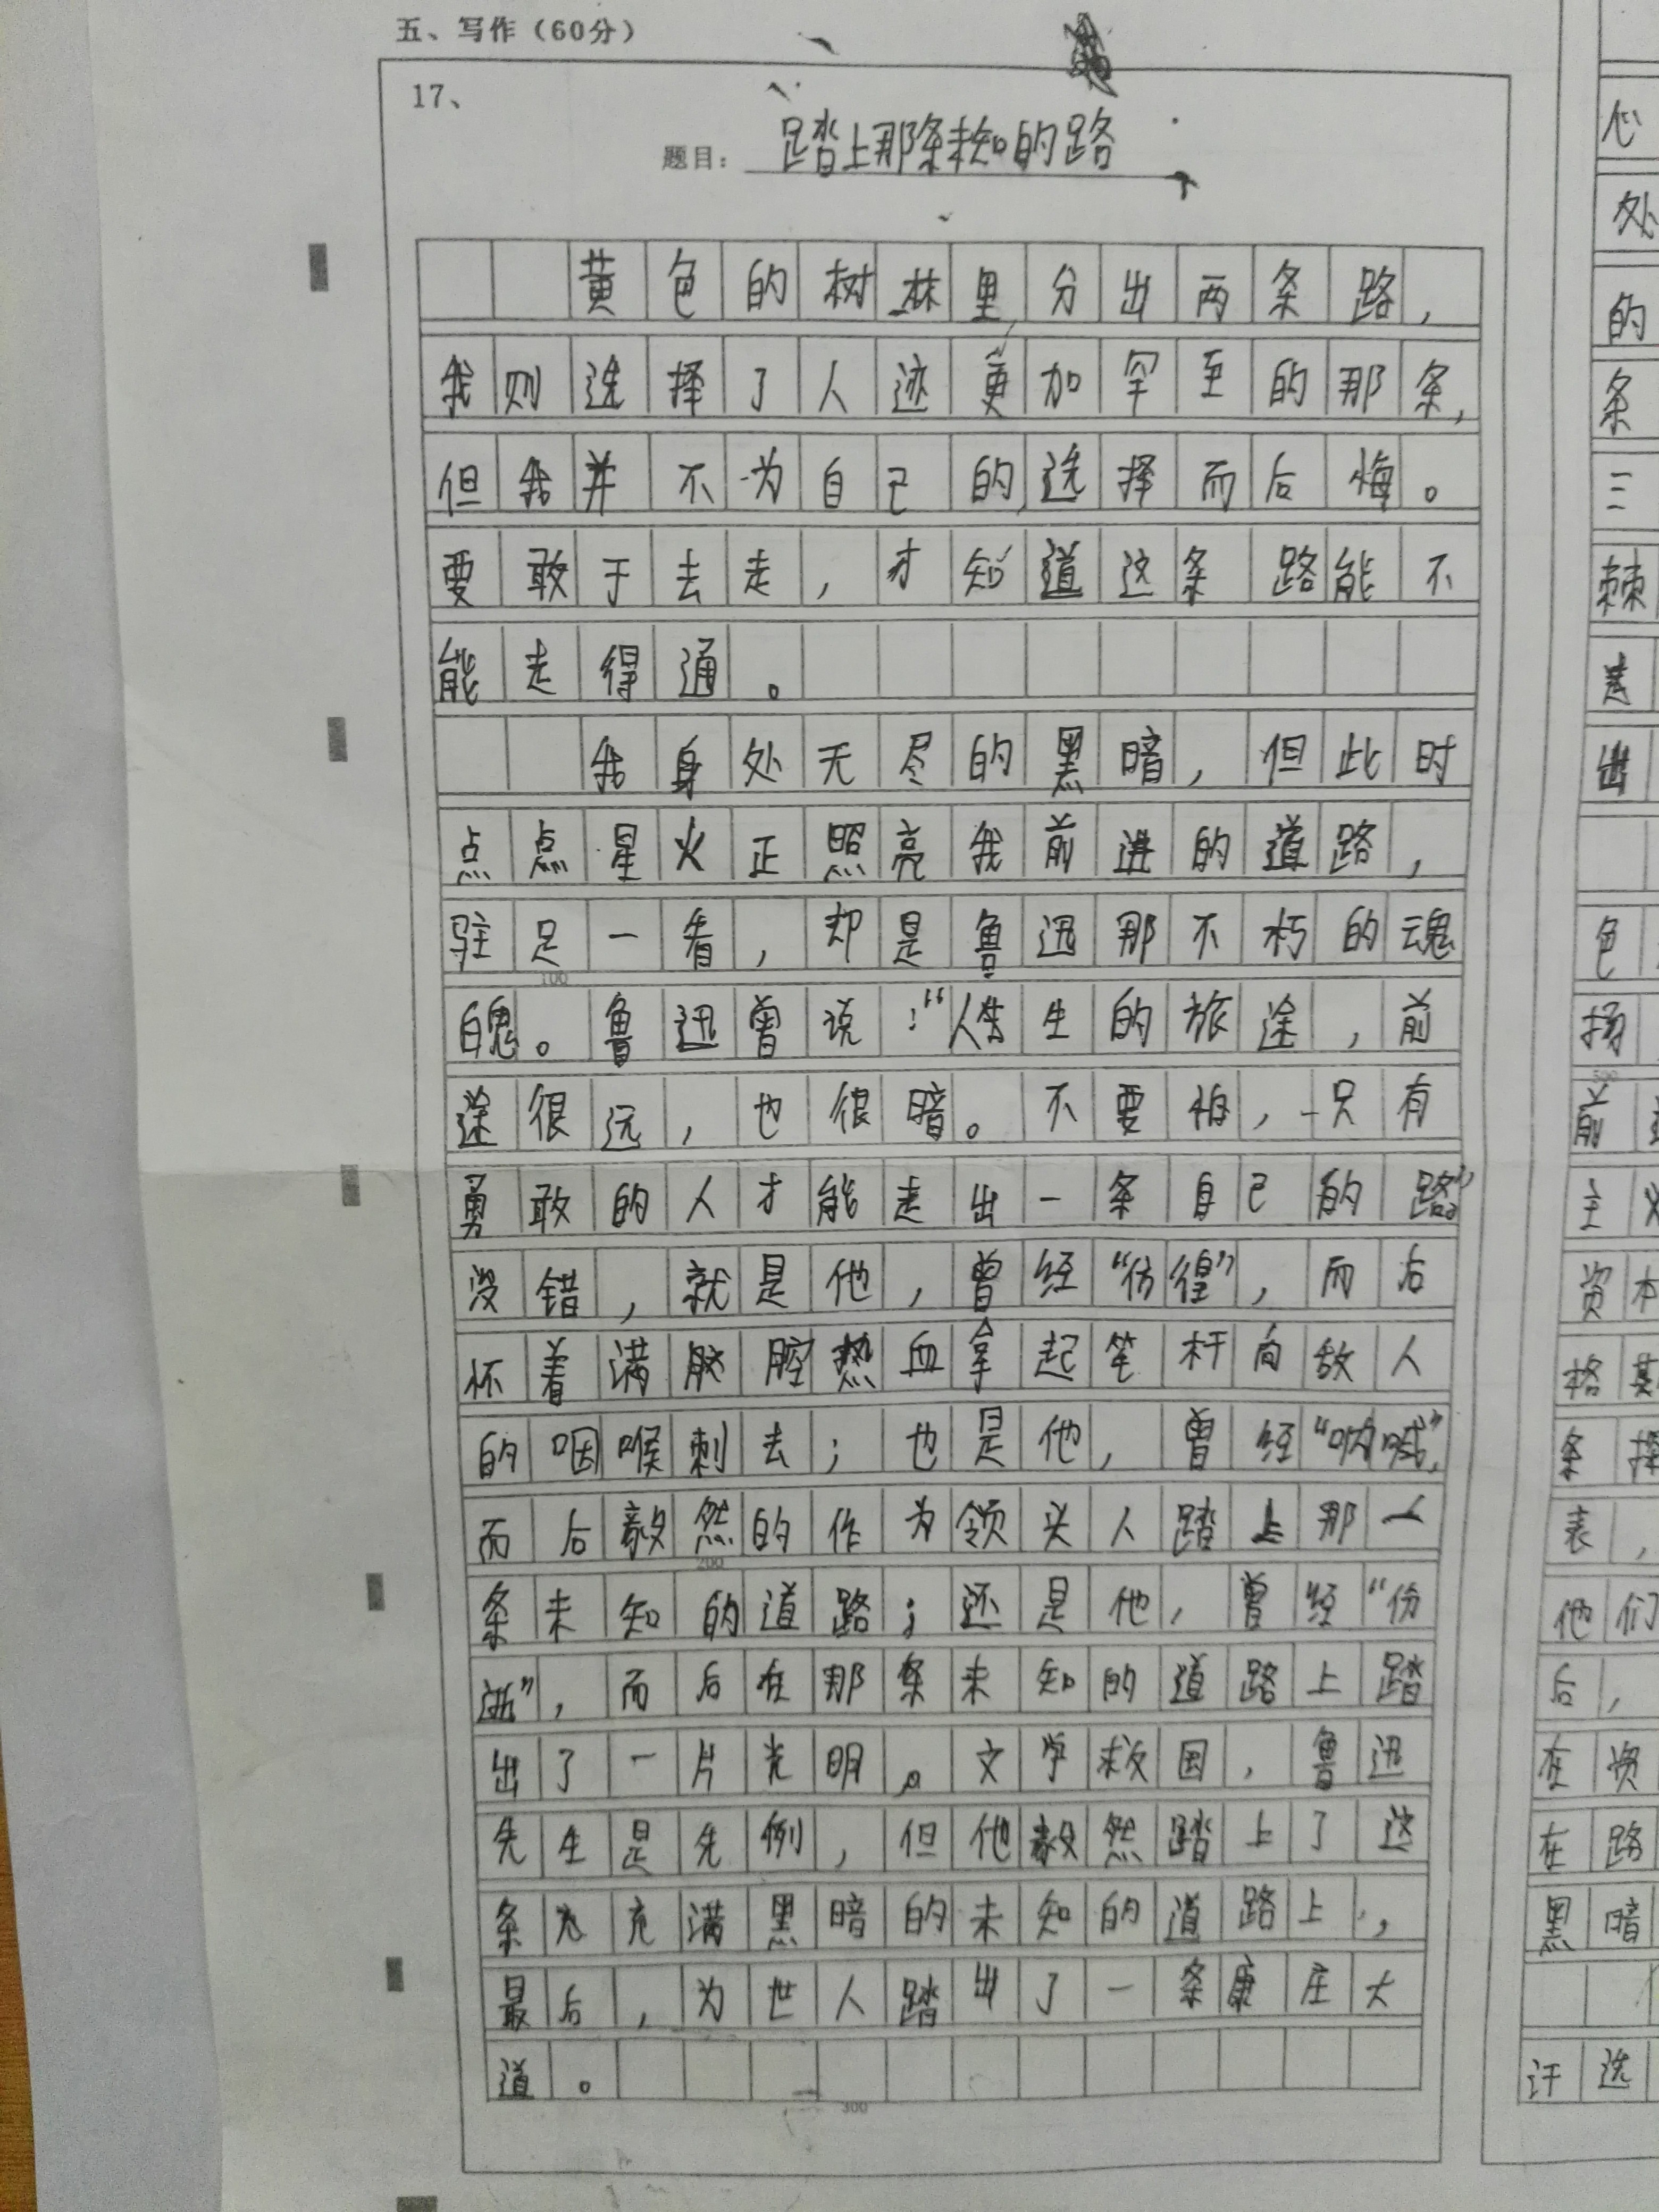 五、写作（60分）
17、
题目：踏上那条未知的路
黄色的树林里分出两条路，
我则选择了人迹更加罕至的那条，
但我并不为自己的选择而后悔。
要敢于去走，才知道这条路能不
能走得通。
我身处无尽的黑暗，但此时
点点星火正照亮我前进的道路，
驻足一看，却是鲁迅那不朽的魂
魄。鲁迅曾说：“人生的旅途，前
100
途很远，也很暗。不要怕，只有
勇敢的人才能走出一条自己的路。”
没错，就是他，曾经“彷徨”，而后
怀着满腔热血拿起笔杆向敌人
的咽喉刺去；也是他，曾经“呐喊”，
而后毅然的作为领头人踏上那一
200
条未知的道路；还是他，曾经“伤
逝”，而后在那条未知的道路上踏
出了一片光明。文学救国，鲁迅
先生是先例，但他毅然踏上了这
条充满黑暗的未知的道路上，
最后，为世人踏出了一条康庄大
道。
300
心
处
的
条
三
棘
出
色
扬
前
主义
资本
格其
条择
表，
他们
后，
在资
在路
黑暗
汗选